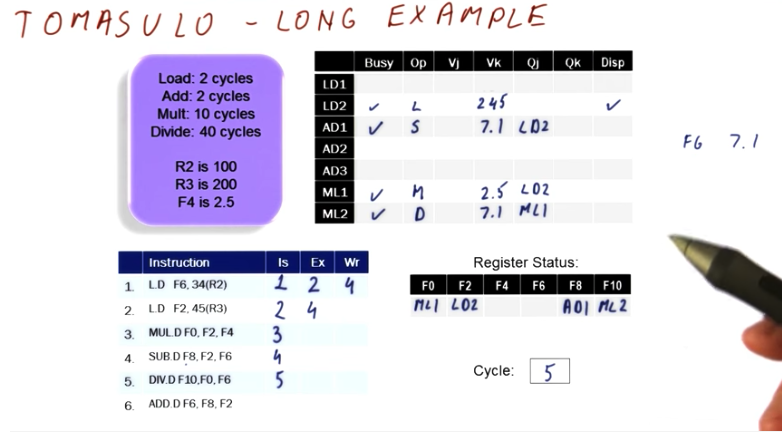 TOMASULO - LONG EXAMPLE
Load: 2 cycles
Add: 2 cycles
Mult: 10 cycles
Divide: 40 cycles
R2 is 100
R3 is 200
F4 is 2.5
Busy Op Vj Vk Qj Qk Disp
LD1
LD2 ✓ L 245 ✓
AD1 ✓ S 7.1 LD2
AD2
AD3
ML1 ✓ M 2.5 LD2
ML2 ✓ D 7.1 ML1
F6 7.1
Instruction Is Ex Wr
1. L.D F6, 34(R2) 1 2 4
2. L.D F2, 45(R3) 2 4
3. MUL.D F0, F2, F4 3
4. SUB.D F8, F2, F6 4
5. DIV.D F10, F0, F6 5
6. ADD.D F6, F8, F2
Register Status:
F0 F2 F4 F6 F8 F10
ML1 LD2 AD1 ML2
Cycle: 5